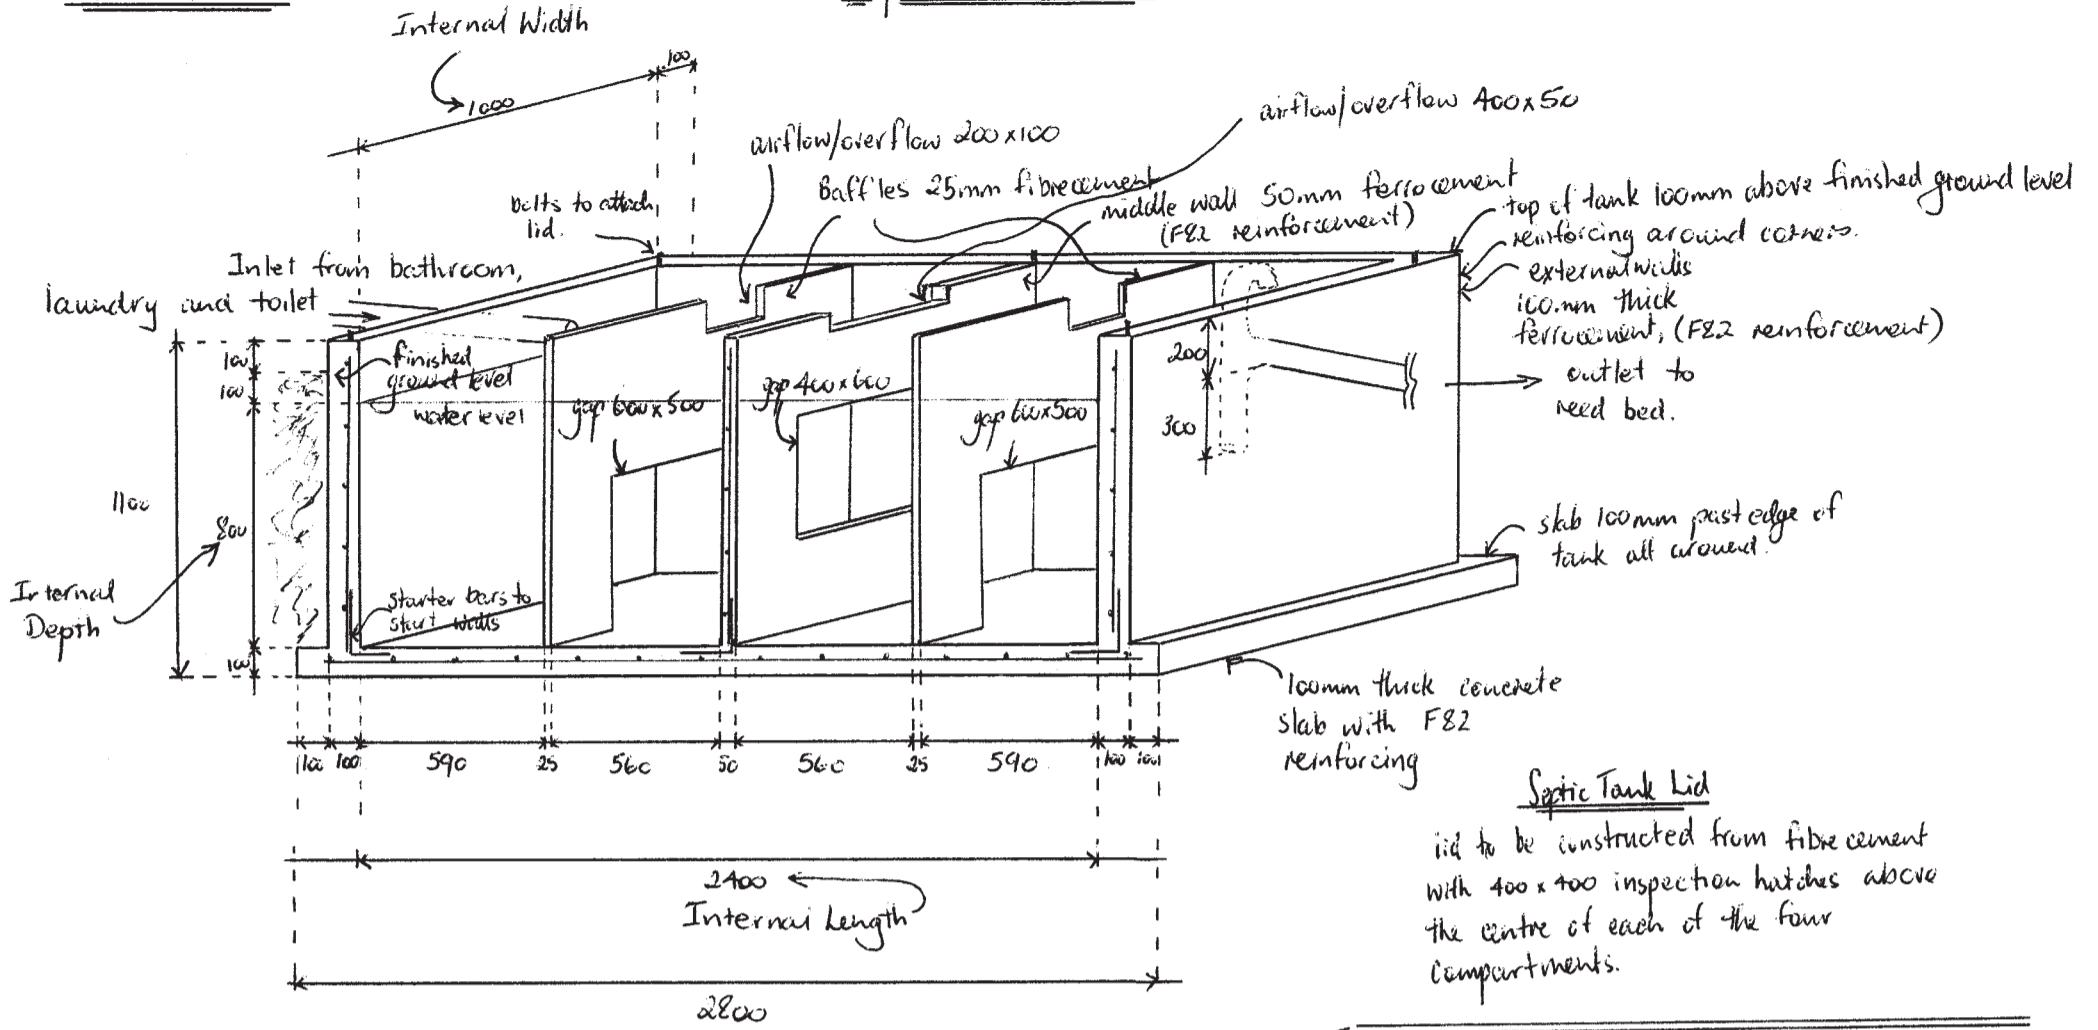 Internal Width
1000
100
airflow/overflow 200x100
airflow/overflow 400x50
Baffles 25mm fibrecement
middle wall 50mm ferrocement
(F82 reinforcement)
bolts to attach
lid.
top of tank 100mm above finished ground level
reinforcing around corners.
external walls
100mm thick
ferrocement, (F82 reinforcement)
Inlet from bathroom,
laundry and toilet
finished
ground level
water level
gap 600x500
gap 400x600
gap 600x500
200
300
outlet to
reed bed.
100
100
1100
800
100
Internal
Depth
starter bars to
start walls
slab 100mm past edge of
tank all around.
100mm thick concrete
slab with F82
reinforcing
100 100 590 25 560 50 560 25 590 100 100
2400
Internal Length
2800
Septic Tank Lid
lid to be constructed from fibre cement
with 400x400 inspection hatches above
the centre of each of the four
compartments.